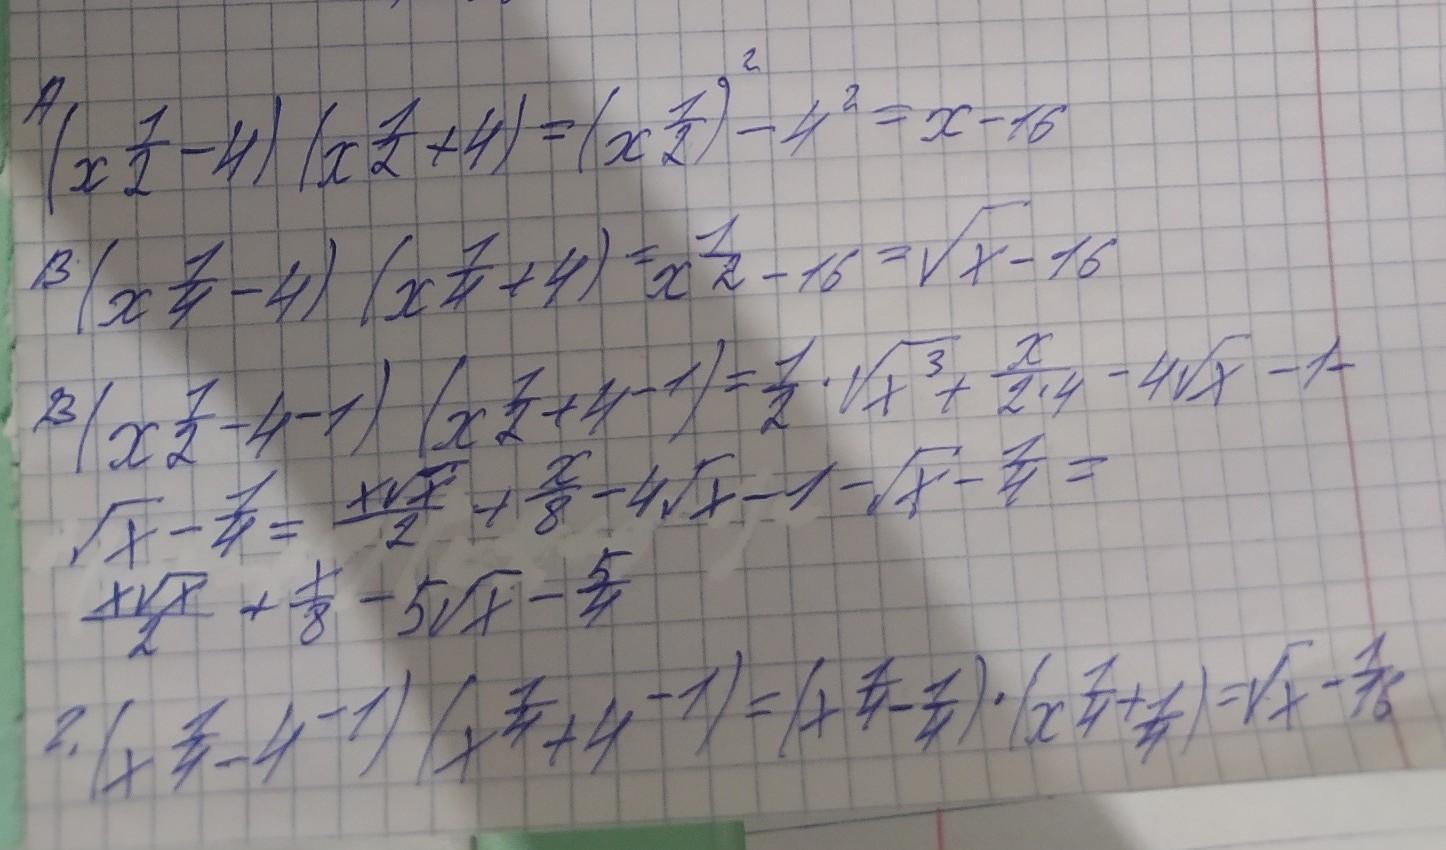 А (x 1/2 - 4) (x 1/2 + 4) = (x 1/2)² - 4² = x - 16
В (x 1/4 - 4) (x 1/4 + 4) = x 1/2 - 16 = √x - 16
В (x 1/2 - 4 - 1) (x 1/2 + 4 - 1) = 1/2 · √x³ + x/(2·4) - 4√x - 1 -
√x - 1/4 = x√x/2 + x/8 - 4√x - 1 - √x - 1/4 =
x√x/2 + x/8 - 5√x - 5/4
Г. (x 1/4 - 4 - 1) (x 1/4 + 4 - 1) = (x 1/4 - 1/4) · (x 1/4 + 1/4) = √x - 1/16